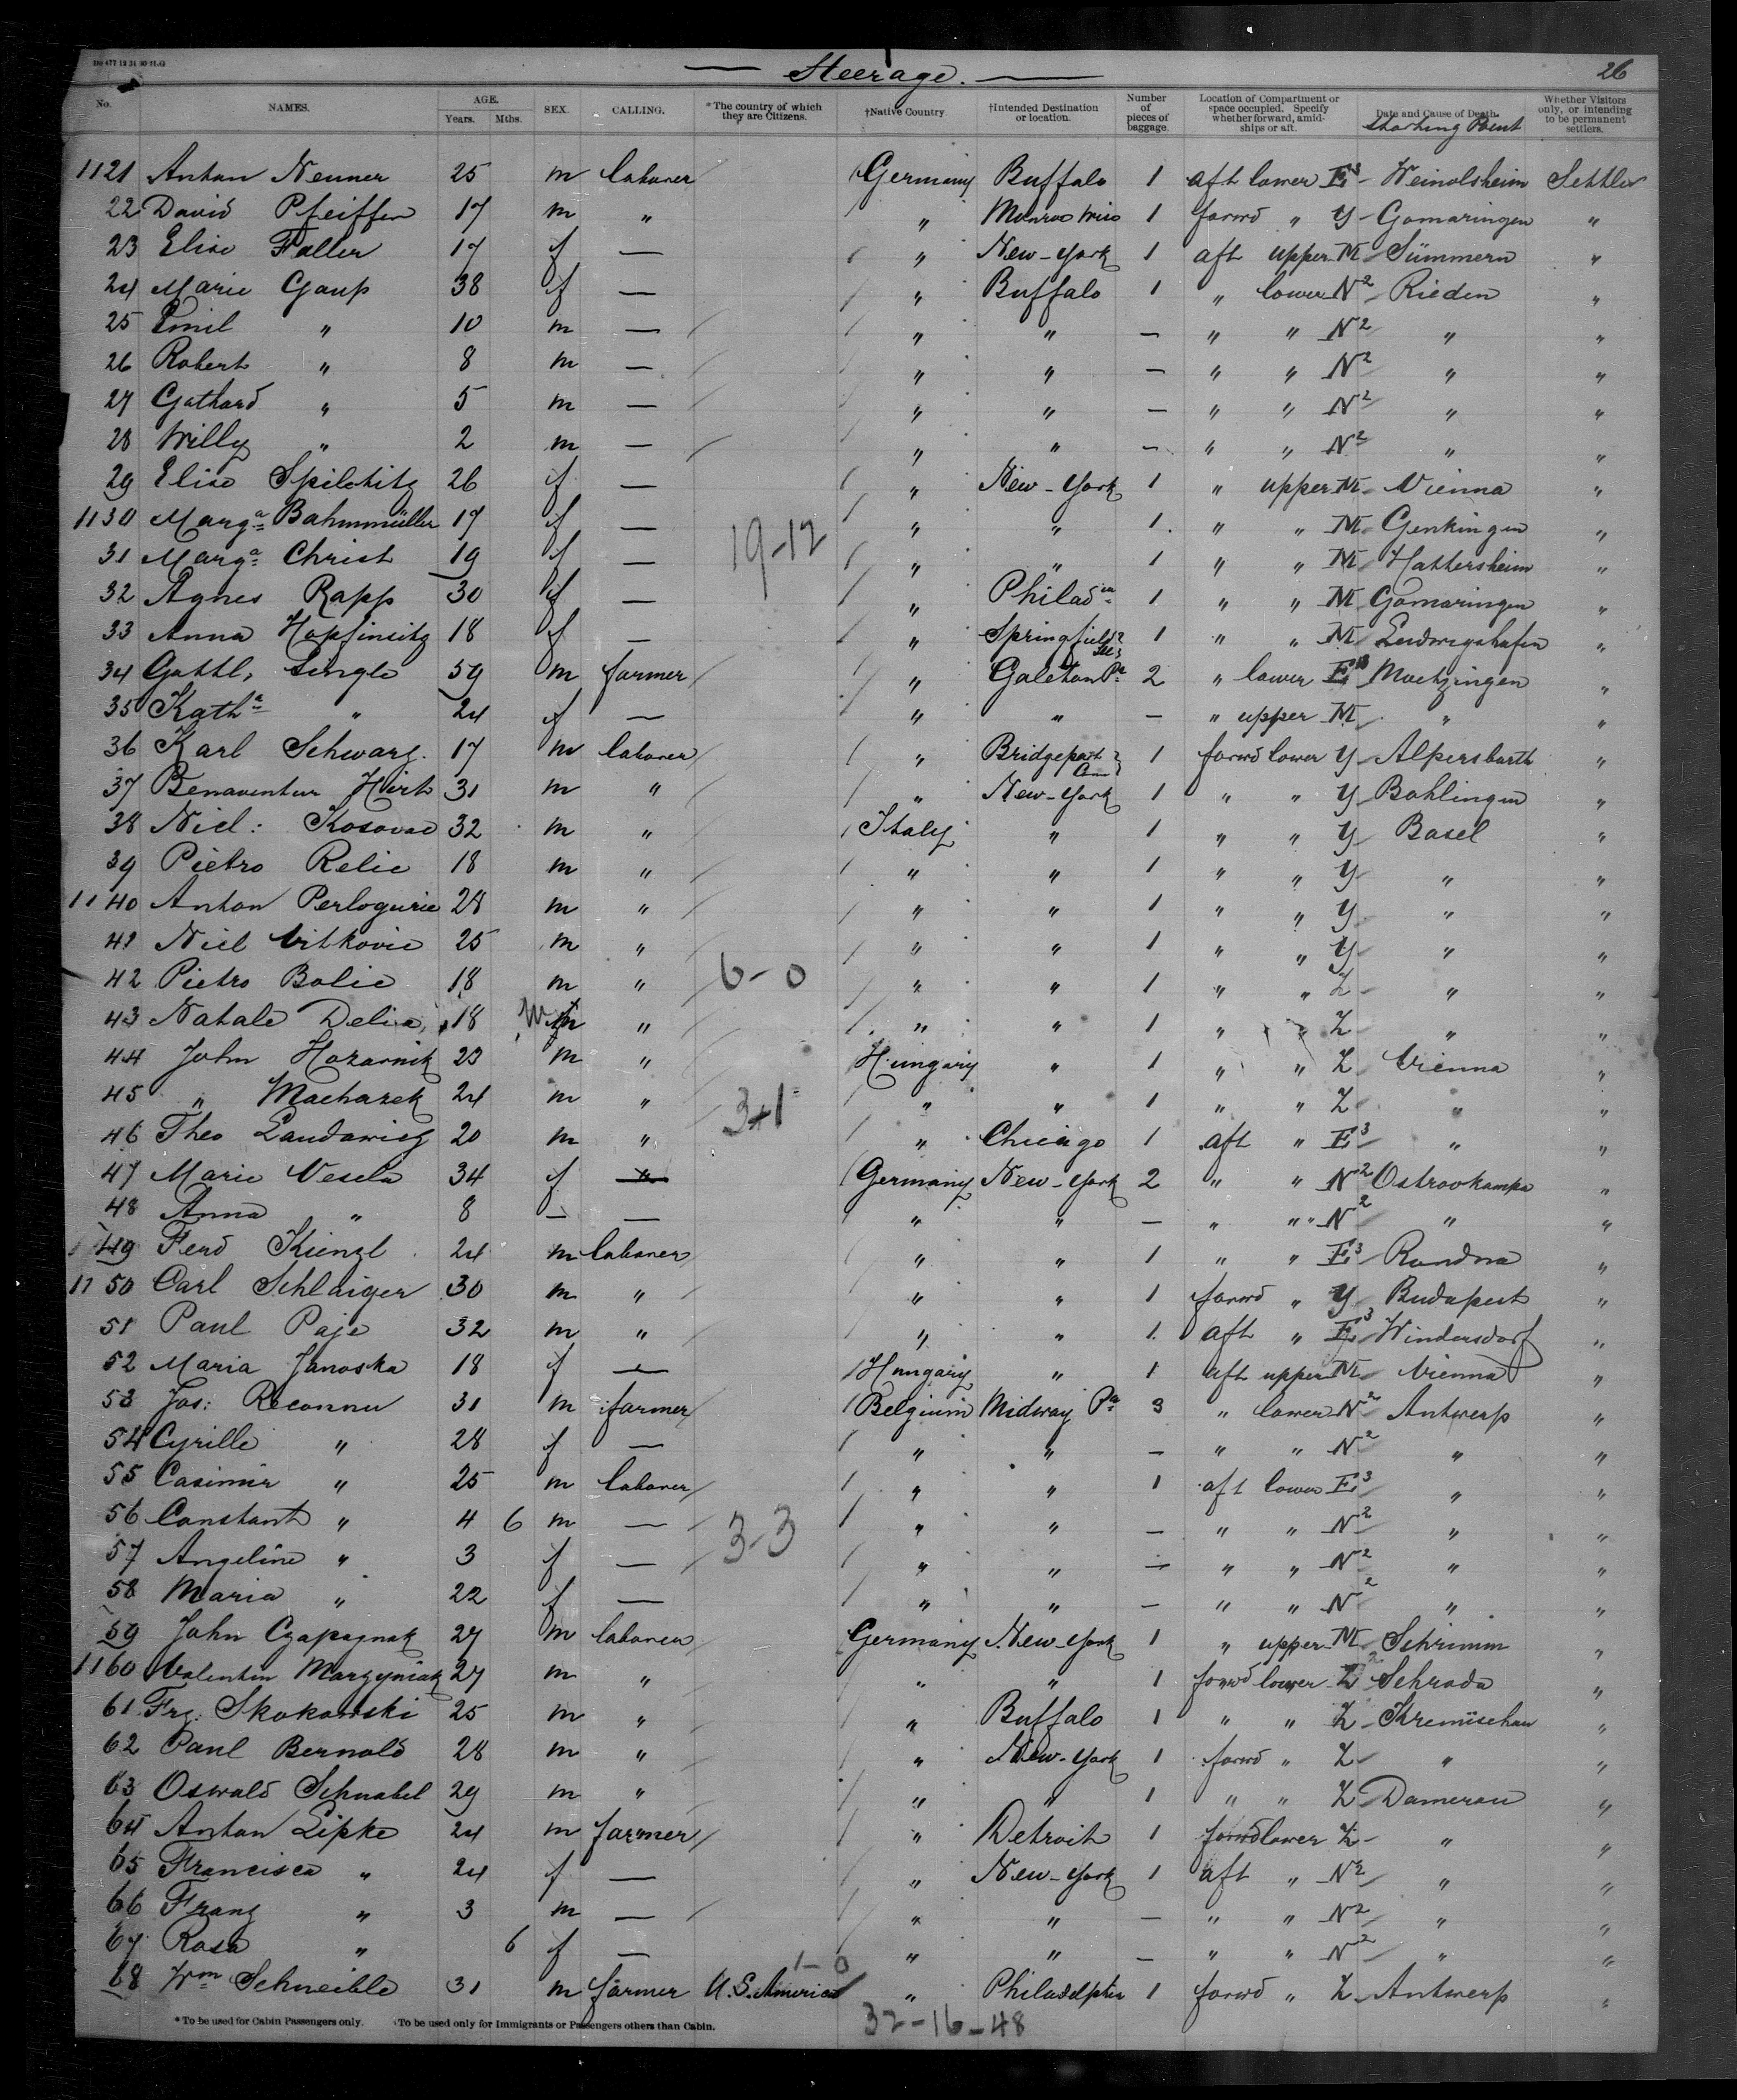 Steerage. 26
No. NAMES. AGE. Years. Mths. SEX. CALLING. *The country of which they are Citizens. †Native Country †Intended Destination or location. Number of pieces of baggage. Location of Compartment or space occupied. Specify whether forward, amidships or aft. Date and Cause of Death. Starting Point Whether Visitors only, or intending to be permanent settlers.
1121 Anton Nenner 25 m laborer Germany Buffalo 1 aft lower E3 Weinolsheim Settler
22 David Pfeiffer 17 m " " Monroe Wis 1 forwd " Y Gomaringen "
23 Elise Faller 17 f — " New-York 1 aft upper M Sümmern "
24 Marie Gaup 38 f — " Buffalo 1 " lower N2 Rieden "
25 Emil " 10 m — " " — " " N2 " "
26 Robert " 8 m — " " — " " N2 " "
27 Gothard " 5 m — " " — " " N2 " "
28 Willy " 2 m — " " — " " N2 " "
29 Elise Spilchitz 26 f — " New-York 1 " upper M Vienna "
1130 Marga Bahnmüller 17 f — " " 1 " " M Genkingen "
19-12
31 Marga Christ 19 f — " " 1 " " M Hattersheim "
32 Agnes Rapp 30 f — " Philadia 1 " " M Gomaringen "
33 Anna Hopfinsitz 18 f — " Springfield Ills 1 " " M Ludwigshafen "
34 Gottl. Single 59 m farmer " Galeton Pa 2 " lower E3 Moetzingen "
35 Katha " 24 f — " " — " upper M " "
36 Karl Schwarz 17 m laborer " Bridgeport Conn 1 forwd lower Y Alpersbach "
37 Benaventur Hirt 31 m " " New-York 1 " " Y Bohlingen "
38 Nicl: Kosovac 32 m " Italy " 1 " " Y Basel "
39 Pietro Relic 18 m " " " 1 " " Y " "
1140 Anton Perlogurie 28 m " " " 1 " " Y " "
41 Nicl Vitkovic 25 m " " " 1 " " Y " "
42 Pietro Bolic 18 m " 6-0 " " 1 " " Z " "
43 Natale Delia 18 m " " " 1 " " Z " "
44 John Hozarnik 23 m " Hungary " 1 " " Z Vienna "
45 " Machazek 24 m " 3-1 " " 1 " " Z " "
46 Theo Landawicz 20 m " " Chicago 1 aft " E3 " "
47 Marie Vesela 34 f — Germany New-York 2 " " N2 Ostrovkampa "
48 Anna " 8 — — " " — " " N2 " "
49 Ferd Kienzl 24 m laborer " " 1 " " E3 Rondna "
1150 Carl Schlaiger 30 m " " " 1 forwd " Y Budapest "
51 Paul Paje 32 m " " " 1 aft " E3 Windersdorf "
52 Maria Janoska 18 f — Hungary " 1 aft upper M Vienna "
53 Jos: Reconnu 31 m farmer Belgium Midway Pa 3 " lower N2 Antwerp "
54 Cyrille " 28 f — " " — " " N2 " "
55 Casimir " 25 m laborer " " 1 aft lower E3 " "
56 Constant " 4 6 m — " " — " " N2 " "
3-3
57 Angeline " 3 f — " " — " " N2 " "
58 Maria " 22 f — " " — " " N2 " "
59 John Czapagnak 27 m laborer Germany New-York 1 " upper M Schrimm "
1160 Valentin Marzyniak 27 m " " " 1 forwd lower Z Schroda "
61 Frz. Skokowski 25 m " " Buffalo 1 " " Z Kremüschau "
62 Paul Bernold 28 m " " New-York 1 forwd " Z " "
63 Oswald Schnabel 29 m " " " 1 " " Z Damerau "
64 Anton Lipke 24 m farmer " Detroit 1 forwd lower Z " "
65 Francisca " 24 f — " New-York 1 aft " N2 " "
66 Franz " 3 m — " " — " " N2 " "
67 Rosa " 6 f — " " — " " N2 " "
1-0
68 Wm Schneible 31 m farmer U.S. America " Philadelphia 1 forwd " Z Antwerp "
*To be used for Cabin Passengers only. †To be used only for Immigrants or Passengers others than Cabin.
32-16-48